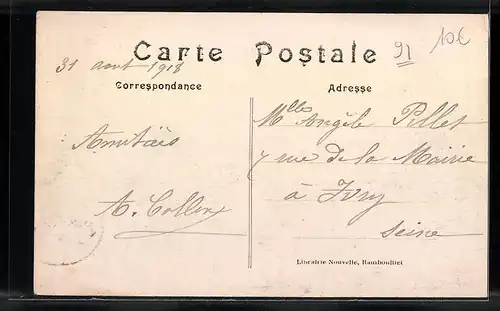 Carte Postale
91
10€
31 aout 1918
Correspondance
Adresse
Amitiés
A. Collin
Mlle Angèle Pillet
7 rue de la Mairie
à Ivry
Seine
Librairie Nouvelle, Rambouillet